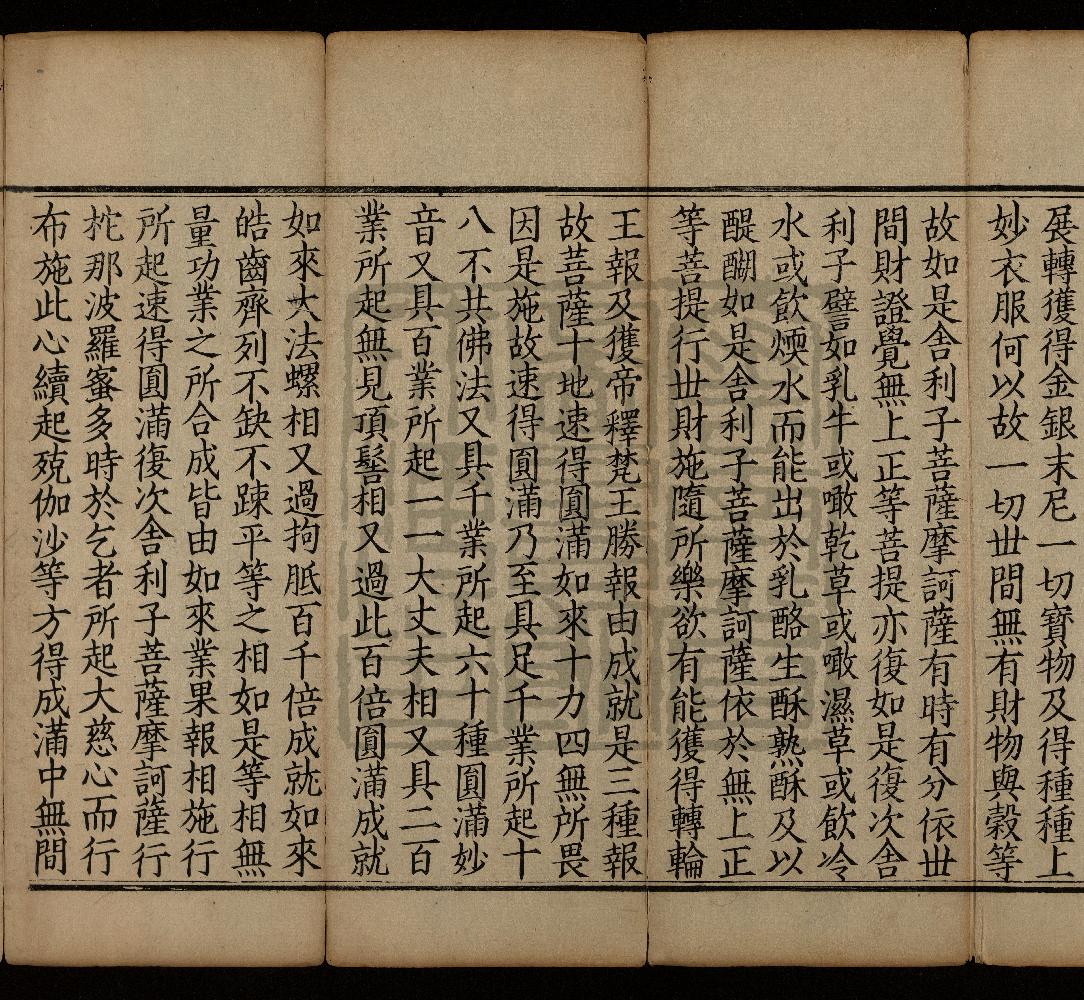 展轉獲得金銀末尼一切寶物及得種種上
妙衣服何以故一切世間無有財物與穀等
故如是舍利子菩薩摩訶薩有時有分依世
間財證覺無上正等菩提亦復如是復次舍
利子譬如乳牛或噉乾草或噉濕草或飲冷
水或飲煗水而能出於乳酪生酥熟酥及以
醍醐如是舍利子菩薩摩訶薩依於無上正
等菩提行世財施隨所樂欲有能獲得轉輪
王報及獲帝釋梵王勝報由成就是三種報
故菩薩十地速得圓滿如來十力四無所畏
因是施故速得圓滿乃至具足千業所起十
八不共佛法又具千業所起六十種圓滿妙
音又具百業所起一一大丈夫相又具二百
業所起無見頂髻相又過此百倍圓滿成就
如來大法螺相又過拘胝百千倍成就如來
皓齒齊列不缺不踈平等之相如是等相無
量功業之所合成皆由如來業果報相施行
所起速得圓滿復次舍利子菩薩摩訶薩行
柁那波羅蜜多時於乞者所起大慈心而行
布施此心續起殑伽沙等方得成滿中無間